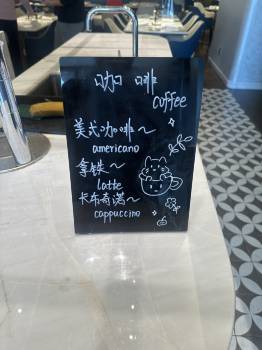 咖啡
coffee
美式咖啡~
americano
拿铁~
latte
卡布奇诺~
cappuccino